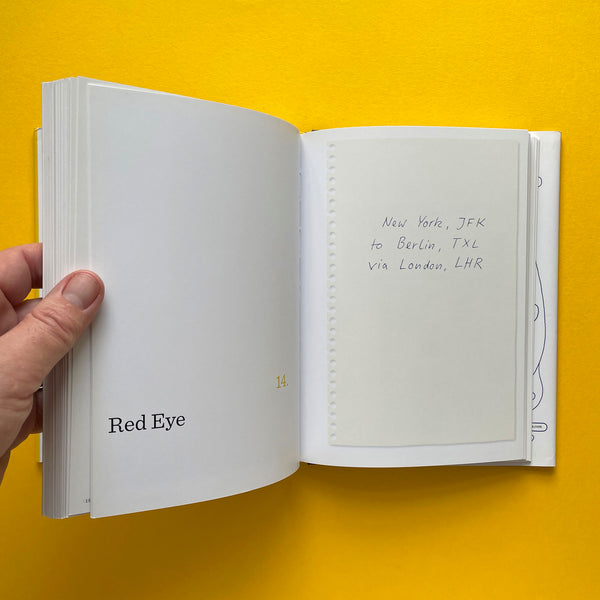 14.
Red Eye
New York, JFK
to Berlin, TXL
via London, LHR